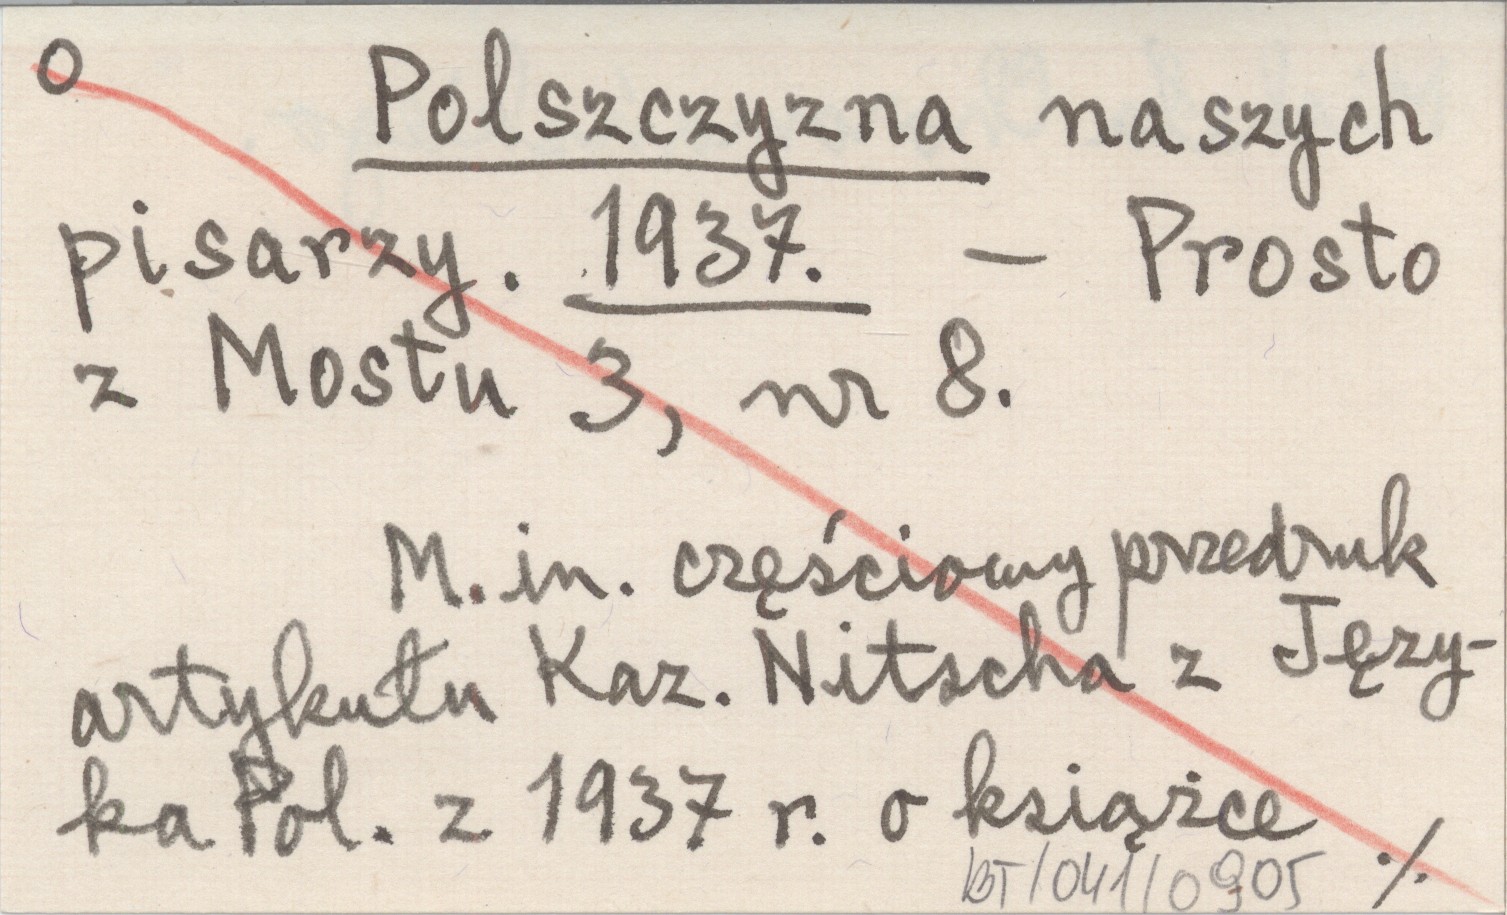 o Polszczyzna naszych
pisarzy. 1937. – Prosto
z Mostu 3, nr 8.
M. in. częściowy przedruk
artykułu Kaz. Nitscha z Języ-
ka Pol. z 1937 r. o książce
BT/041/0905 ./.